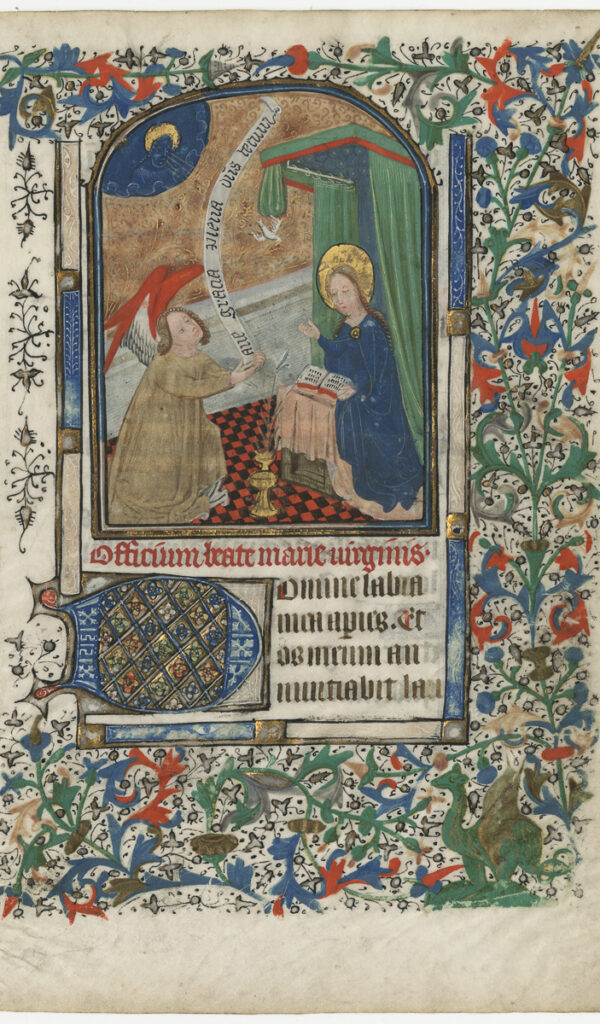 aue gracia plena dns tecum
Officium beate marie virginis.
Domine labia
mea apies. Et
os meum an
nuntiabit lau